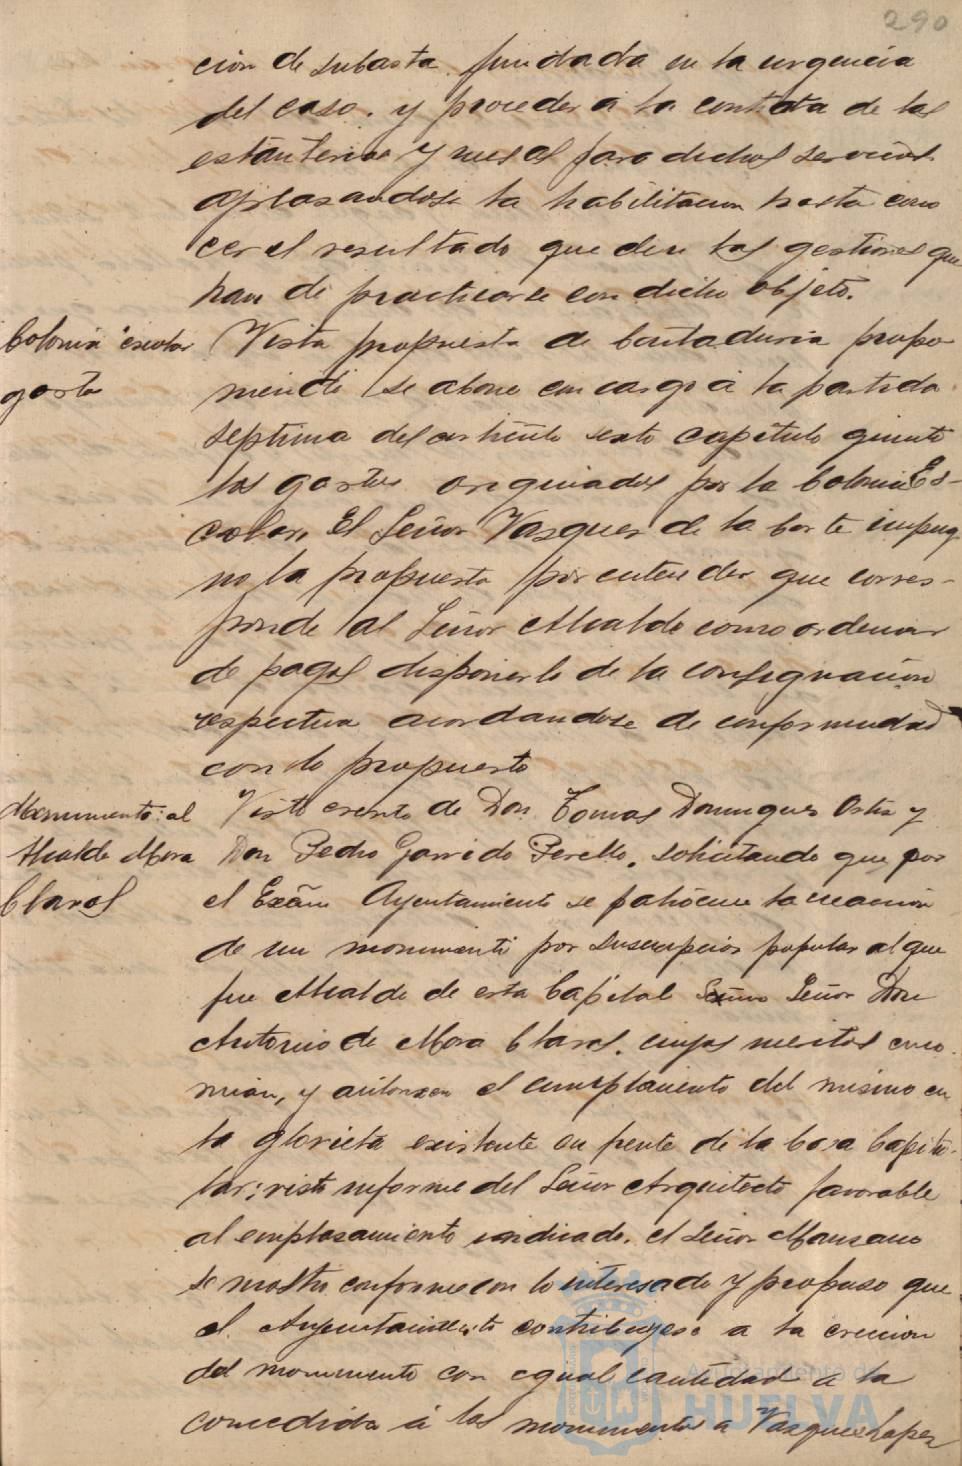 290
ción de subasta fundada en la urgencia
del caso. y proceder a la contrata de las
estanterias y mesas para dichos servicios
aplasandose la habilitacion hasta cono
cer el resultado que den las gestiones que
han de practicarse con dicho objeto.
Colonia escolar
gasto
Vista propuesta de Contaduria propo
niendo se abone con cargo á la partida
septima del articulo sexto capitulo quinto
los gastos originados por la Colonia Es-
colar, El Señor Vazquez de la Corte impug
no la propuesta por entender que corres-
ponde al Señor Alcalde como ordenar
de pagos disponerlo de la consignacion
respectiva acordandose de conformidad
con lo propuesto
Monumento al
Alcalde Mora
Claros
Visto escrito de Don Tomas Dominguez Ortiz y
Don Pedro Garrido Perello, solicitando que por
el Excmo Ayuntamiento se patrocine la creacion
de un monumento por suscripcion popular al que
fue Alcalde de esta Capital Señor Don
Antonio de Mora Claros, cuyos meritos enco
mian, y autoricen el emplazamiento del mismo en
la glorieta existente en frente de la Casa Capitu-
lar; visto informe del Señor Arquitecto favorable
al emplasamiento indicado. el Señor Manzano
se mostro conforme con lo interesado y propuso que
el Ayuntamiento contribuyese a la creacion
del monumento con igual cantidad a la
concedida á los monumentos a Vazquez Lopez
Ayuntamiento de
HUELVA